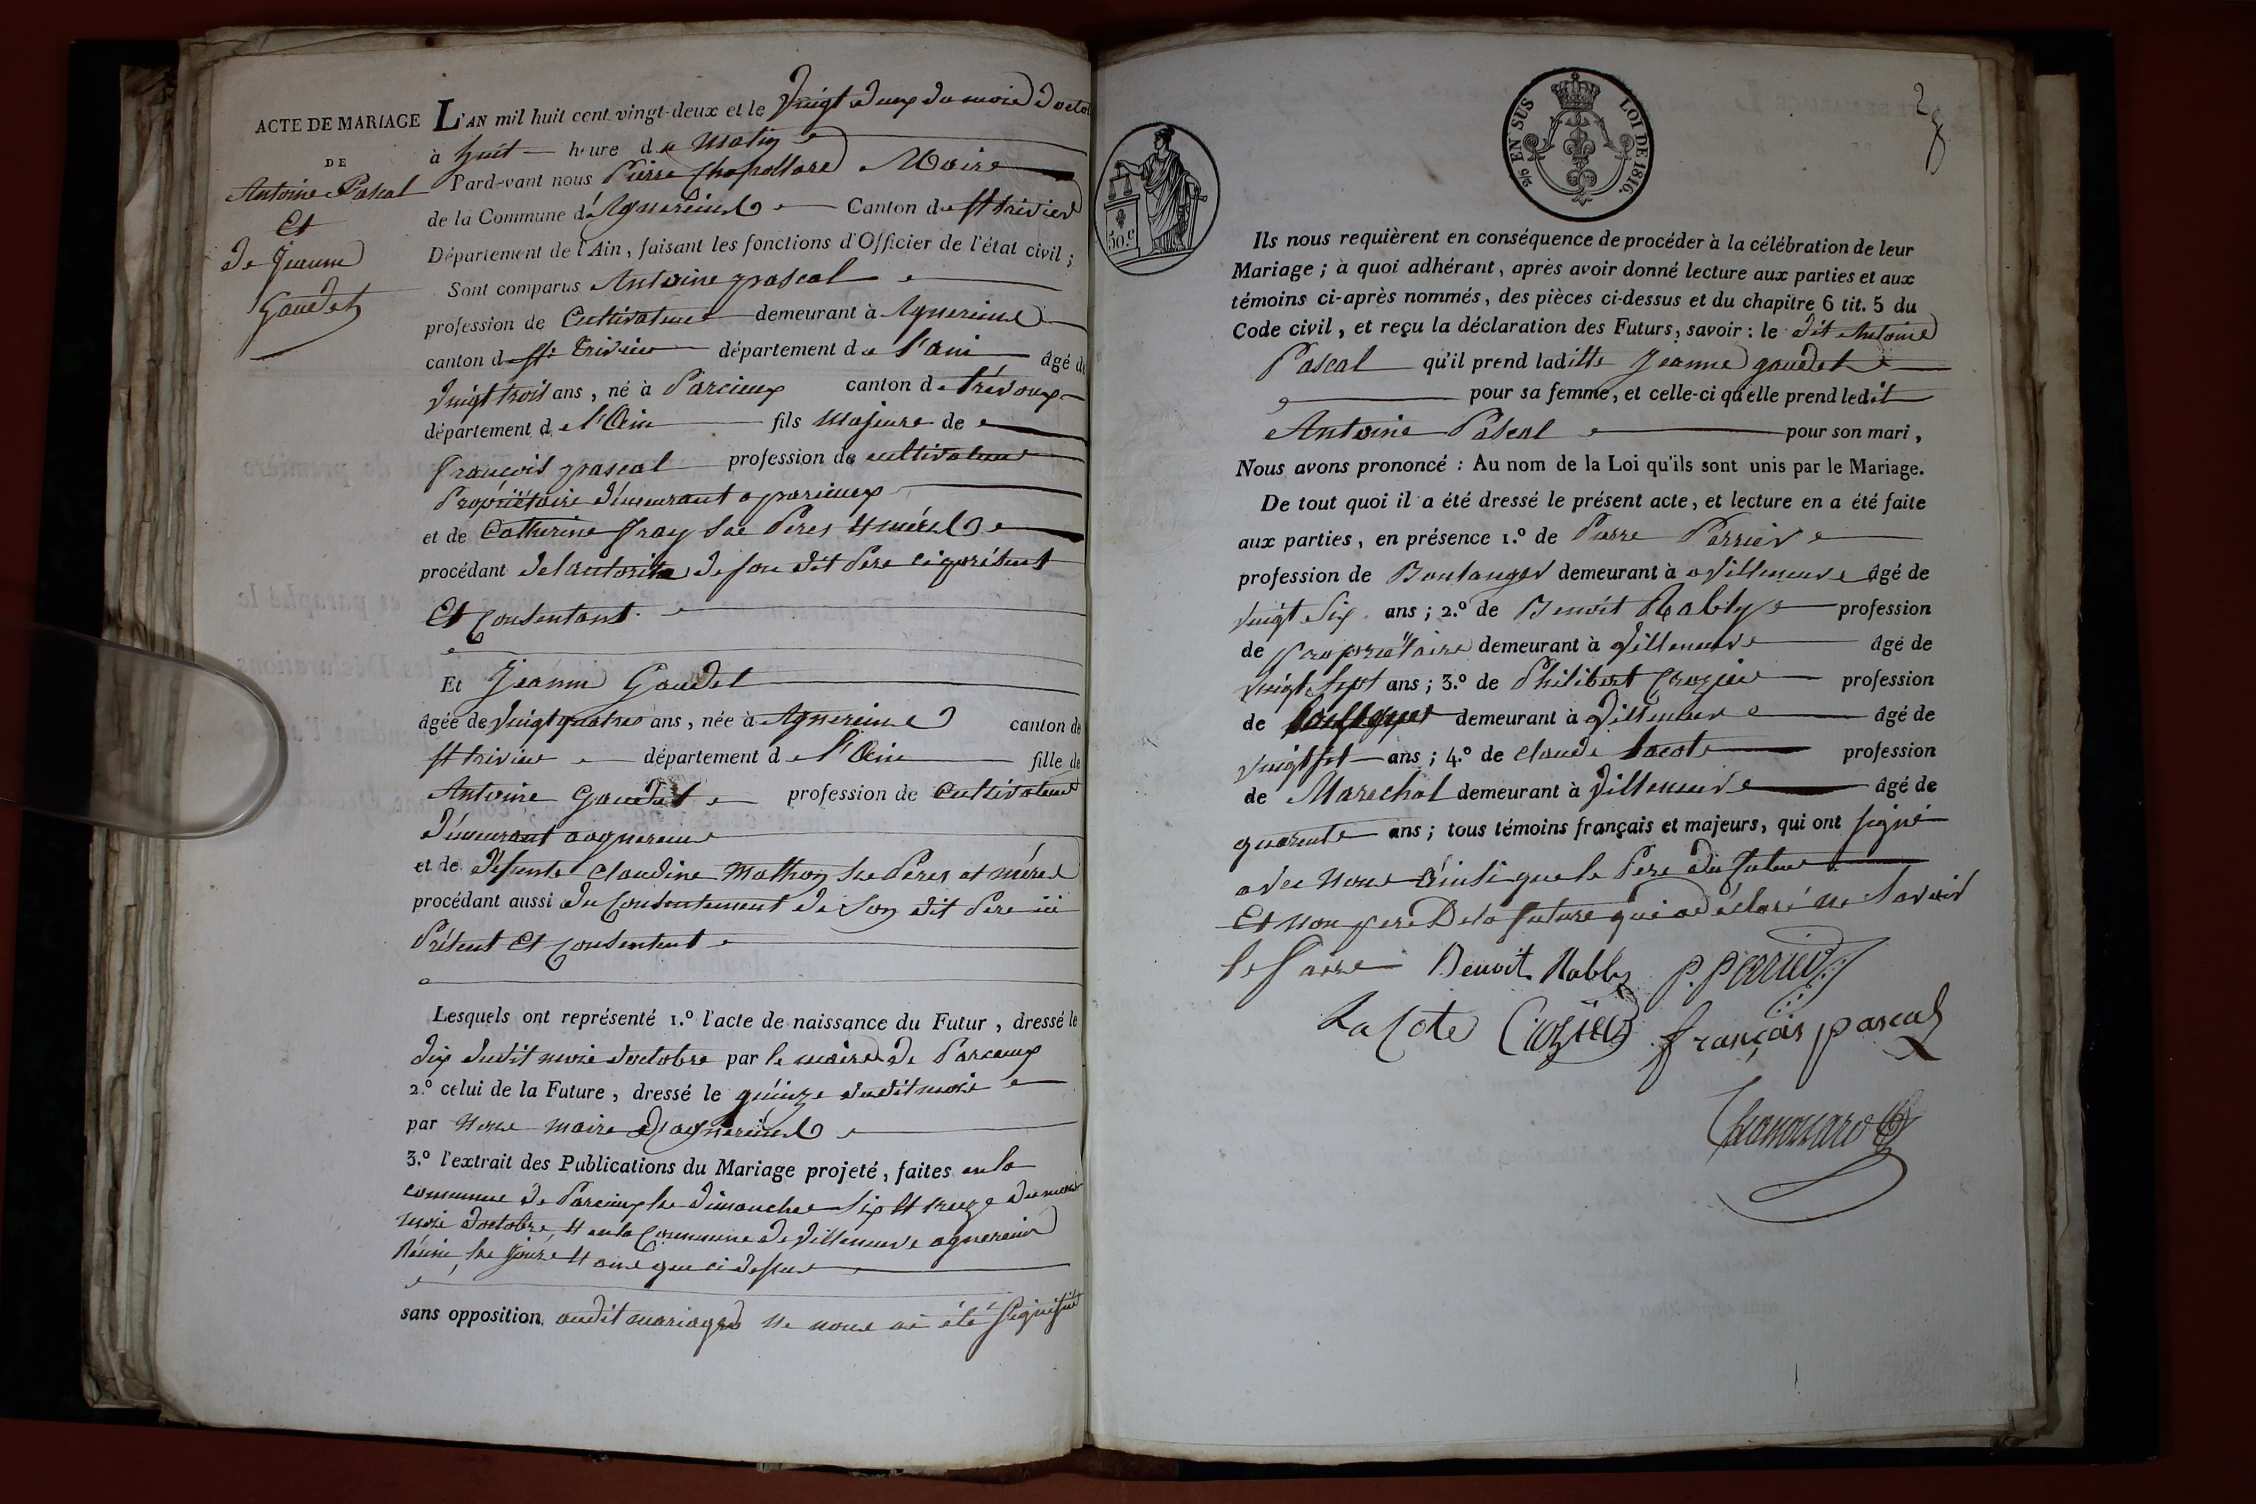 ACTE DE MARIAGE
DE
Antoine Pascal
Et
de Jeanne
Gaudet
L'AN mil huit cent vingt-deux et le vingt deux du mois d'octob
à huit heure du matin
Pardevant nous Pierre Maire
de la Commune d'Agnereins Canton de St trivier
Département de l'Ain, faisant les fonctions d'Officier de l'état civil;
Sont comparus Antoine pascal
profession de Cultivateur demeurant à Agnereins
canton de St Trivier département de l'ain âgé de
vingt trois ans, né à Parcieux canton de trévoux
département de l'Ain fils majeure de
françois pascal profession de cultivateur
Propriétaire démeurant a parcieux
et de Catherine fray ses Peres et méres
procédant de l'autorité de son dit Pere ci présent
Et Consentant
Et Jeanne Gaudet
âgée de vingt quatre ans, née à Agnereins canton de
St trivier département de l'Ain fille de
Antoine Gaudet profession de Cultivateur
démeurant a agnereins
et de défunte Claudine Mathon ses Peres et méres
procédant aussi du Consentement de son dit Pere ici
Présent Et Consentent
Lesquels ont représenté 1.º l'acte de naissance du Futur, dressé le
dix dudit mois d'octobre par le maire de Parceux
2.º celui de la Future, dressé le quinze dudit mois
par nous maire d'agnereins
3.º l'extrait des Publications du Mariage projeté, faites en la
commune de Parcieux les dimanches six et treize du mois
mois d'octobre, et en la Commune de Villeneuve agnereins
Réunie, les jours et ans que ci dessus
sans opposition. audit mariages ne nous ai été signifié
28
EN SUS
LOI DE 1816.
50.c
Ils nous requièrent en conséquence de procéder à la célébration de leur
Mariage; à quoi adhérant, après avoir donné lecture aux parties et aux
témoins ci-après nommés, des pièces ci-dessus et du chapitre 6 tit. 5 du
Code civil, et reçu la déclaration des Futurs, savoir: le dit Antoine
Pascal qu'il prend laditte Jeanne gaudet
pour sa femme, et celle-ci qu'elle prend ledit
Antoine Pascal pour son mari,
Nous avons prononcé: Au nom de la Loi qu'ils sont unis par le Mariage.
De tout quoi il a été dressé le présent acte, et lecture en a été faite
aux parties, en présence 1.º de Pierre Perrier
profession de Boulanger demeurant à Villeneuve âgé de
vingt Six ans; 2.º de Benoit Rably profession
de propriétaire demeurant à Villeneuve âgé de
vingt Sept ans; 3.º de Philibert Crozier profession
de demeurant à Villeneuve âgé de
vingt set ans; 4.º de Claude Lacote profession
de Marechal demeurant à Villeneuve âgé de
quarente ans; tous témoins français et majeurs, qui ont signé
avec nous Ainsi que le Pere du futur
Et non pere De la future qui a déclaré ne Savoir
le faire Benoit Rably P. Perrier
La Cote Crozier françois pascal